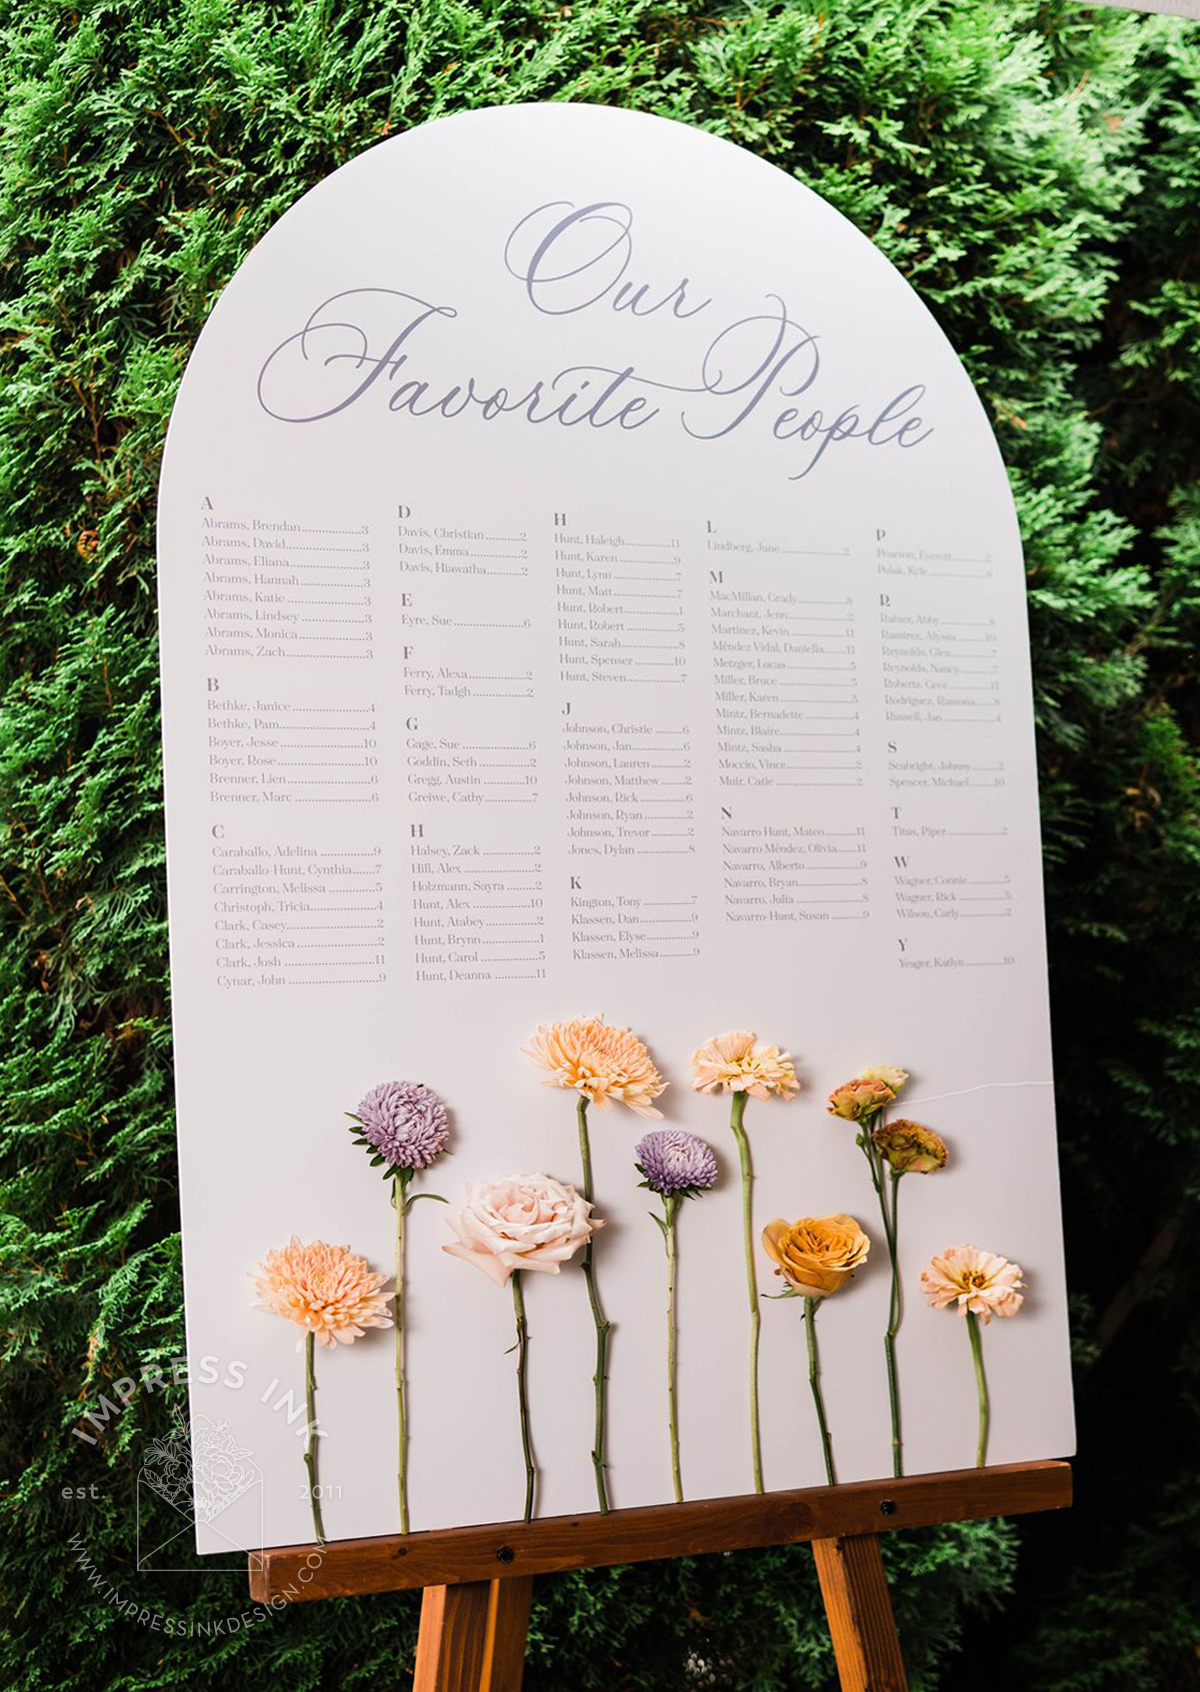 Our
Favorite People
A
Abrams, Brendan..................3
Abrams, David..................3
Abrams, Eliana..................3
Abrams, Hannah..................3
Abrams, Katie..................3
Abrams, Lindsey..................3
Abrams, Monica..................3
Abrams, Zach..................3
B
Bethke, Janice..................4
Bethke, Pam..................4
Boyer, Jesse..................10
Boyer, Rose..................10
Brenner, Lien..................6
Brenner, Marc..................6
C
Caraballo, Adelina..................9
Caraballo-Hunt, Cynthia.......7
Carrington, Melissa..................5
Christoph, Tricia..................4
Clark, Casey..................2
Clark, Jessica..................2
Clark, Josh..................11
Cynar, John..................9
D
Davis, Christian..................2
Davis, Emma..................2
Davis, Hiawatha..................2
E
Eyre, Sue..................6
F
Ferry, Alexa..................2
Ferry, Tadgh..................2
G
Gage, Sue..................6
Goddin, Seth..................2
Gregg, Austin..................10
Greiwe, Cathy..................7
H
Halsey, Zack..................2
Hill, Alex..................2
Holzmann, Sayra..................2
Hunt, Alex..................10
Hunt, Atabey..................2
Hunt, Brynn..................1
Hunt, Carol..................5
Hunt, Deanna..................11
H
Hunt, Haleigh..................11
Hunt, Karen..................9
Hunt, Lynn..................7
Hunt, Matt..................7
Hunt, Robert..................1
Hunt, Robert..................5
Hunt, Sarah..................8
Hunt, Spenser..................10
Hunt, Steven..................7
J
Johnson, Christie.......6
Johnson, Jan..................6
Johnson, Lauren..................2
Johnson, Matthew.......2
Johnson, Rick..................6
Johnson, Ryan..................2
Johnson, Trevor..................2
Jones, Dylan..................8
K
Kington, Tony..................7
Klassen, Dan..................9
Klassen, Elyse..................9
Klassen, Melissa..................9
L
Lindberg, June..................2
M
MacMillan, Grady..................8
Marchant, Jenn..................2
Martinez, Kevin..................11
Méndez Vidal, Daniella.......11
Metzger, Lucas..................5
Miller, Bruce..................5
Miller, Karen..................5
Mintz, Bernadette..................4
Mintz, Blaire..................4
Mintz, Sasha..................4
Moccio, Vince..................2
Muir, Catie..................2
N
Navarro Hunt, Mateo.......11
Navarro Méndez, Olivia.......11
Navarro, Alberto..................9
Navarro, Bryan..................8
Navarro, Julia..................8
Navarro-Hunt, Susan.......9
P
Pearson, Everett..................2
Polak, Kyle..................
R
Abby..................8
Ramirez, Alyssa..................10
Reynolds, Glen..................7
Reynolds, Nancy..................7
Roberts, Cece..................11
Rodriguez, Ramona.......8
Russell, Jan..................4
S
Seabright, Johnny.......2
Spencer, Michael.......10
T
Titus, Piper..................2
W
Wagner, Connie..................5
Wagner, Rick..................5
Wilson, Carly..................2
Y
Yeager, Katlyn..................10
IMPRESS INK
est. 2011
WWW.IMPRESSINKDESIGN.COM